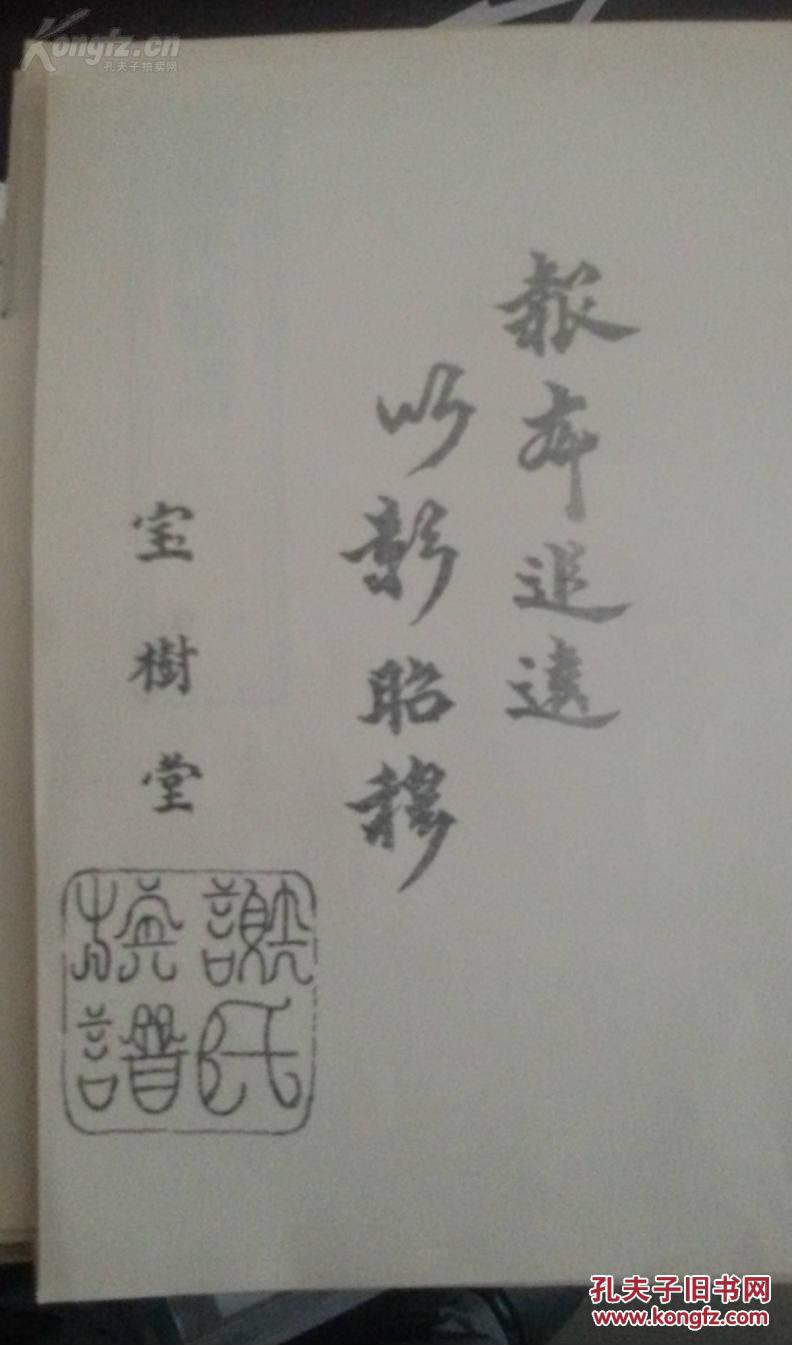 Kongfz.cn
孔夫子拍卖网
報本追遠
以彰昭穆
宝樹堂
謝氏
族譜
孔夫子旧书网
www.kongfz.com